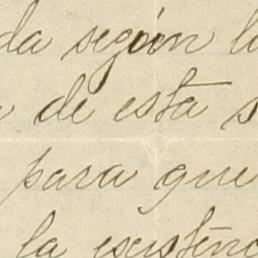 da según l
de esta s
para que
la existenc